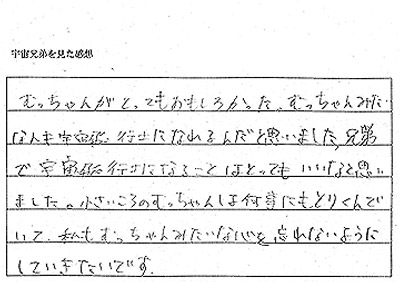 宇宙兄弟を見た感想
むっちゃんがとってもおもしろかった。むっちゃんみたい
な人も宇宙飛行士になれるんだと思いました。兄弟
で宇宙飛行士になることはとってもいいなと思い
ました。小さいころのむっちゃんは何事にもとりくんで
いて、私もむっちゃんみたいな心を忘れないように
していきたいです。